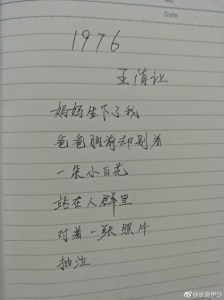 No
Date
1976
王清让
妈妈生下了我
爸爸胸前却别着
一朵小白花
站在人群里
对着一张照片
抽泣
@长安伊沙